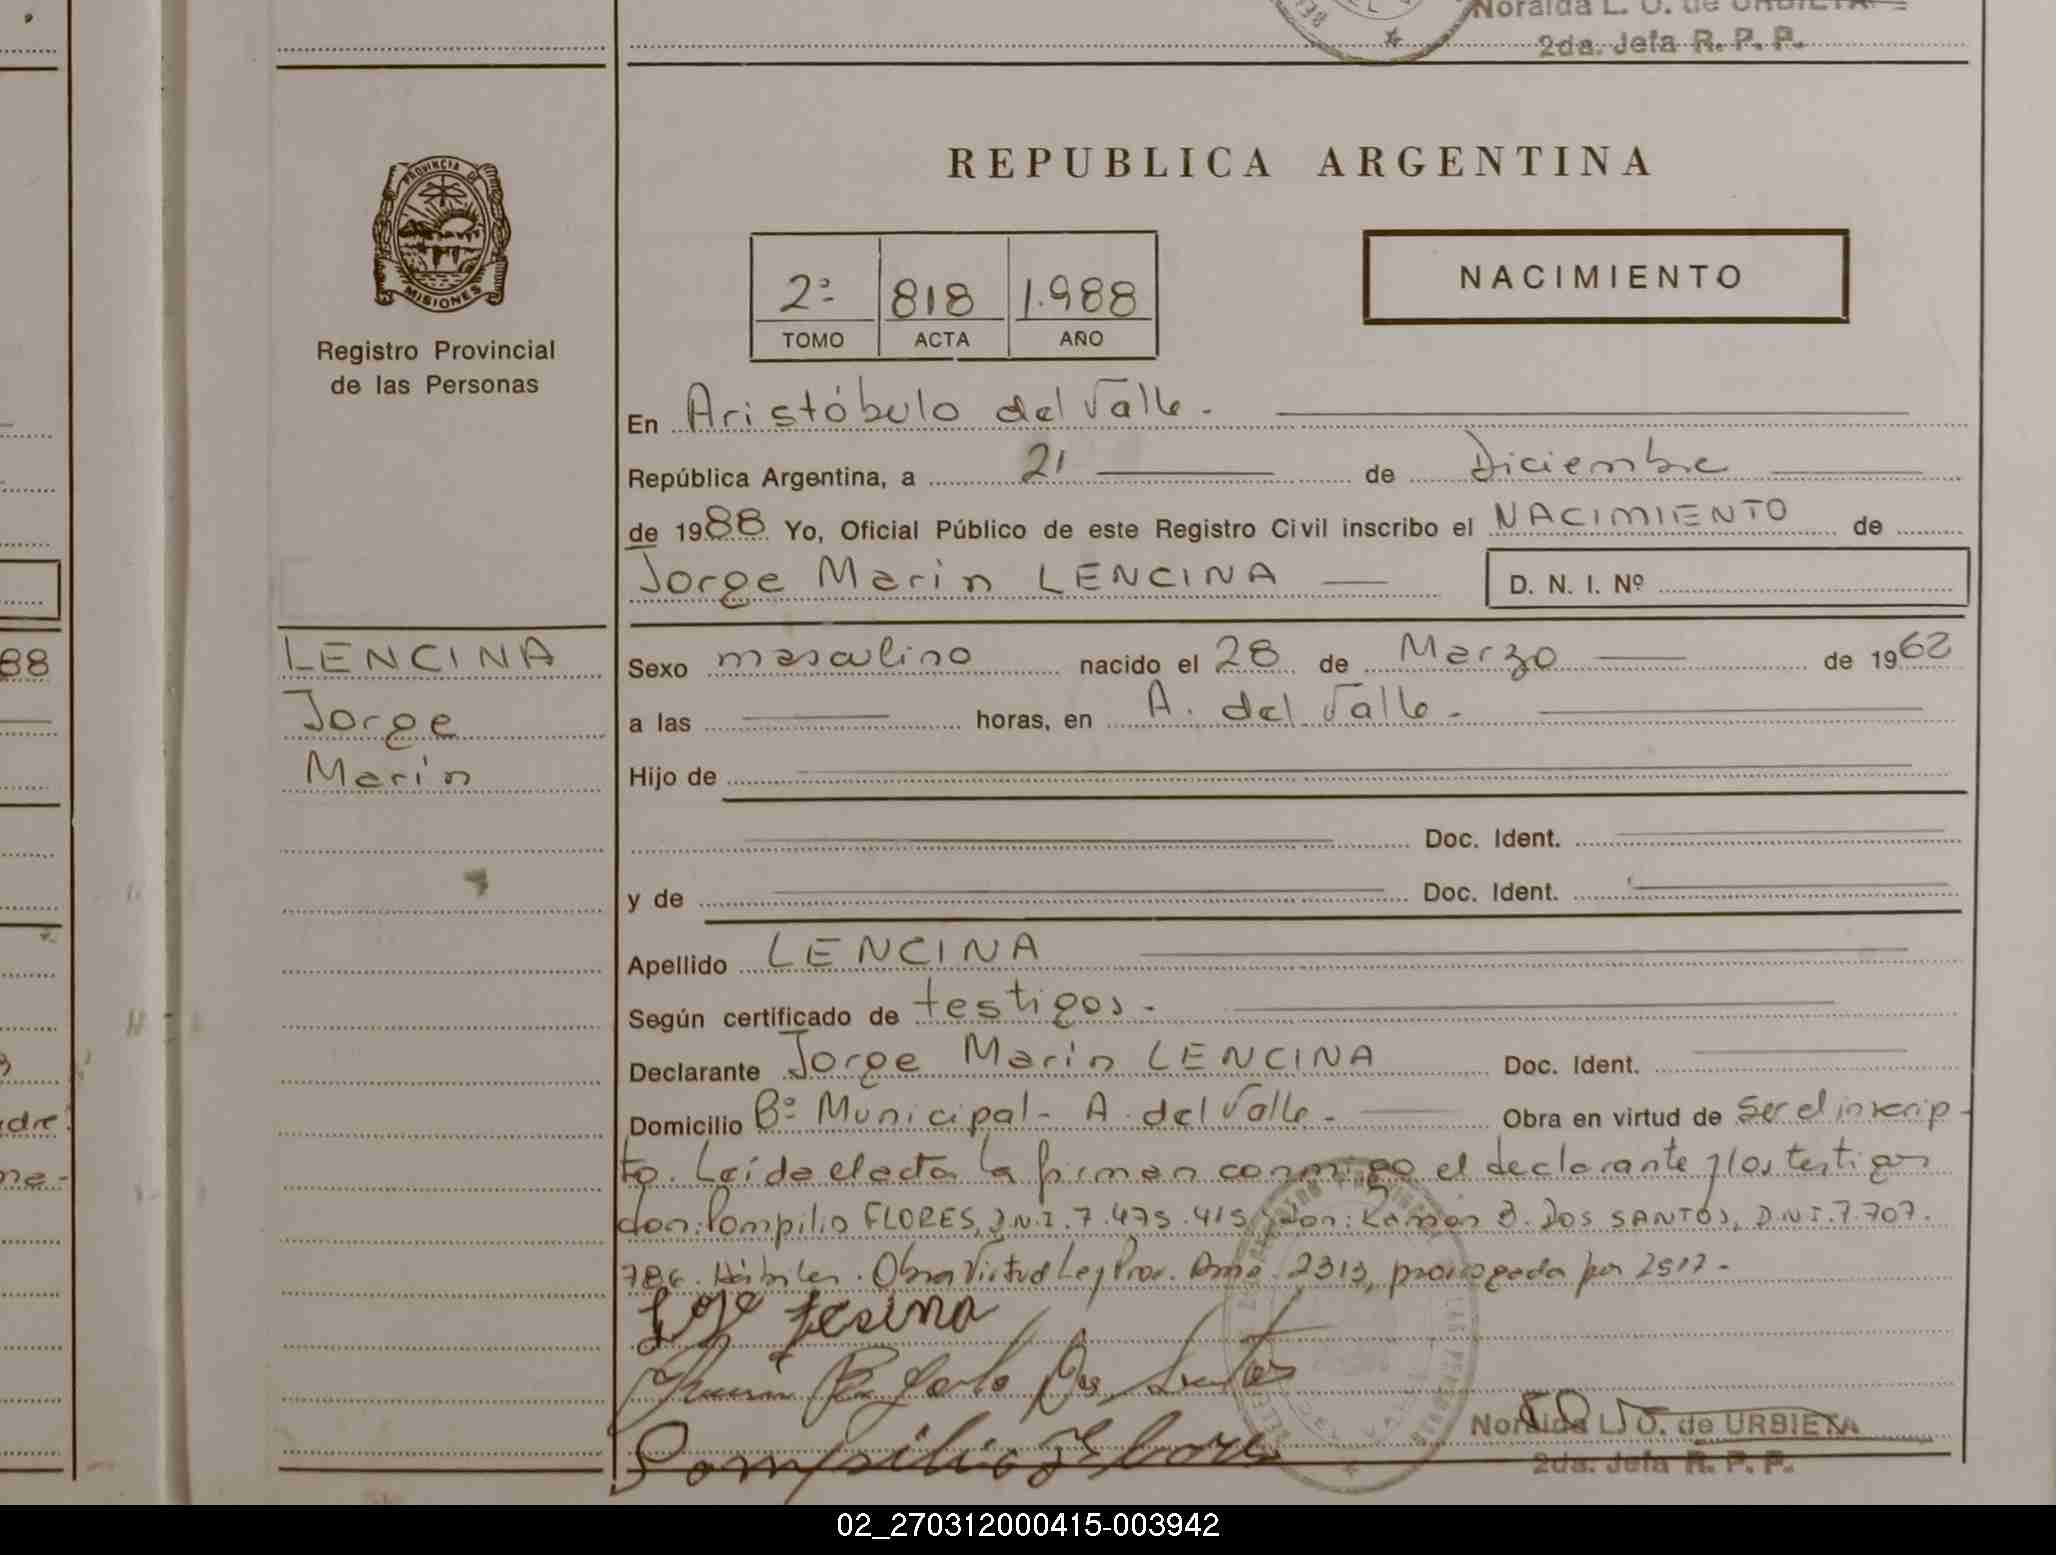 Noralda L. O. de URBIETA
2da. Jefa R. P. P.
PROVINCIA DE
MISIONES
Registro Provincial
de las Personas
REPUBLICA ARGENTINA
2º 818 1.988
TOMO ACTA AÑO
NACIMIENTO
En Aristóbulo del Valle.
República Argentina, a 21 de Diciembre
de 1988 Yo, Oficial Público de este Registro Civil inscribo el NACIMIENTO de
Jorge Marin LENCINA D. N. I. Nº
LENCINA
Jorge
Marin
88
Sexo masculino nacido el 28 de Marzo de 1962
a las horas, en A. del Valle.
Hijo de
Doc. Ident.
y de Doc. Ident.
Apellido LENCINA
Según certificado de testigos.
Declarante Jorge Marin LENCINA Doc. Ident.
Domicilio Bº Municipal - A. del Valle. Obra en virtud de ser el inscrip-
to. Leída el acta la firman conmigo el declarante y los testigos
don: Pompilio FLORES, D.N.I. 7.475.415 y don: Ramón B. DOS SANTOS, D.N.I. 7.707.
786. Hábiles. Obra Virtud Ley Prov. 2313, prorrogada por 2517.
Dos Santos
Pompilio Flores
Noralda L. O. de URBIETA
2da. Jefa R. P. P.
02_270312000415-003942